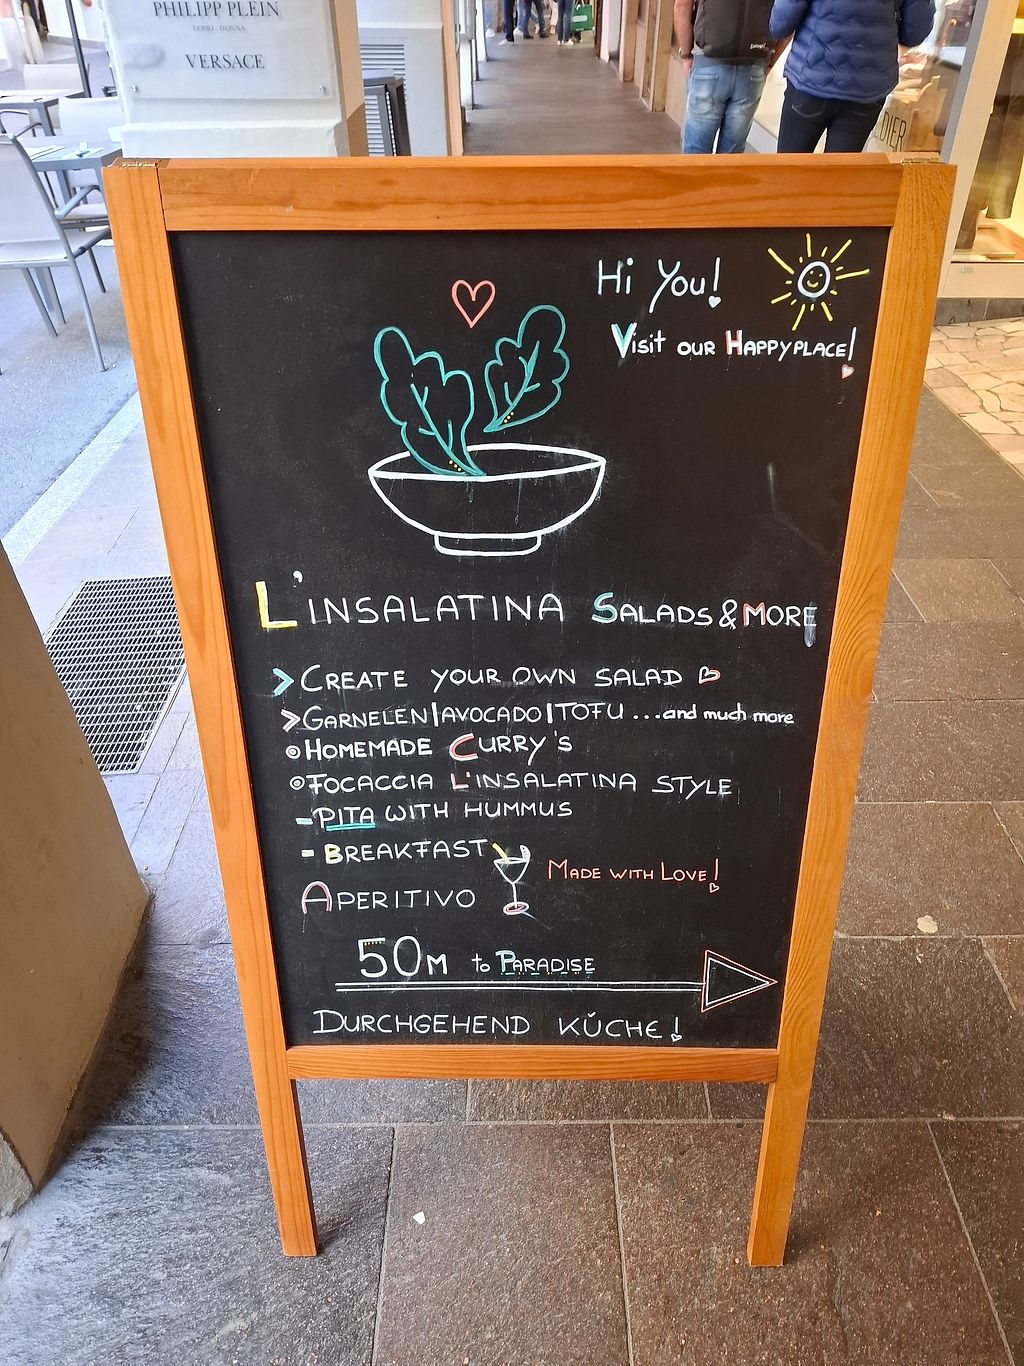 PHILIPP PLEIN
UOMO - DONNA
VERSACE
Hi You!
Visit our Happyplace!
L'INSALATINA SALADS & MORE
CREATE YOUR OWN SALAD
GARNELEN|AVOCADO|TOFU ...and much more
HOMEMADE CURRY'S
FOCACCIA L'INSALATINA STYLE
- PITA WITH HUMMUS
- BREAKFAST
MADE WITH LOVE!
APERITIVO
50M to PARADISE
DURCHGEHEND KÜCHE!